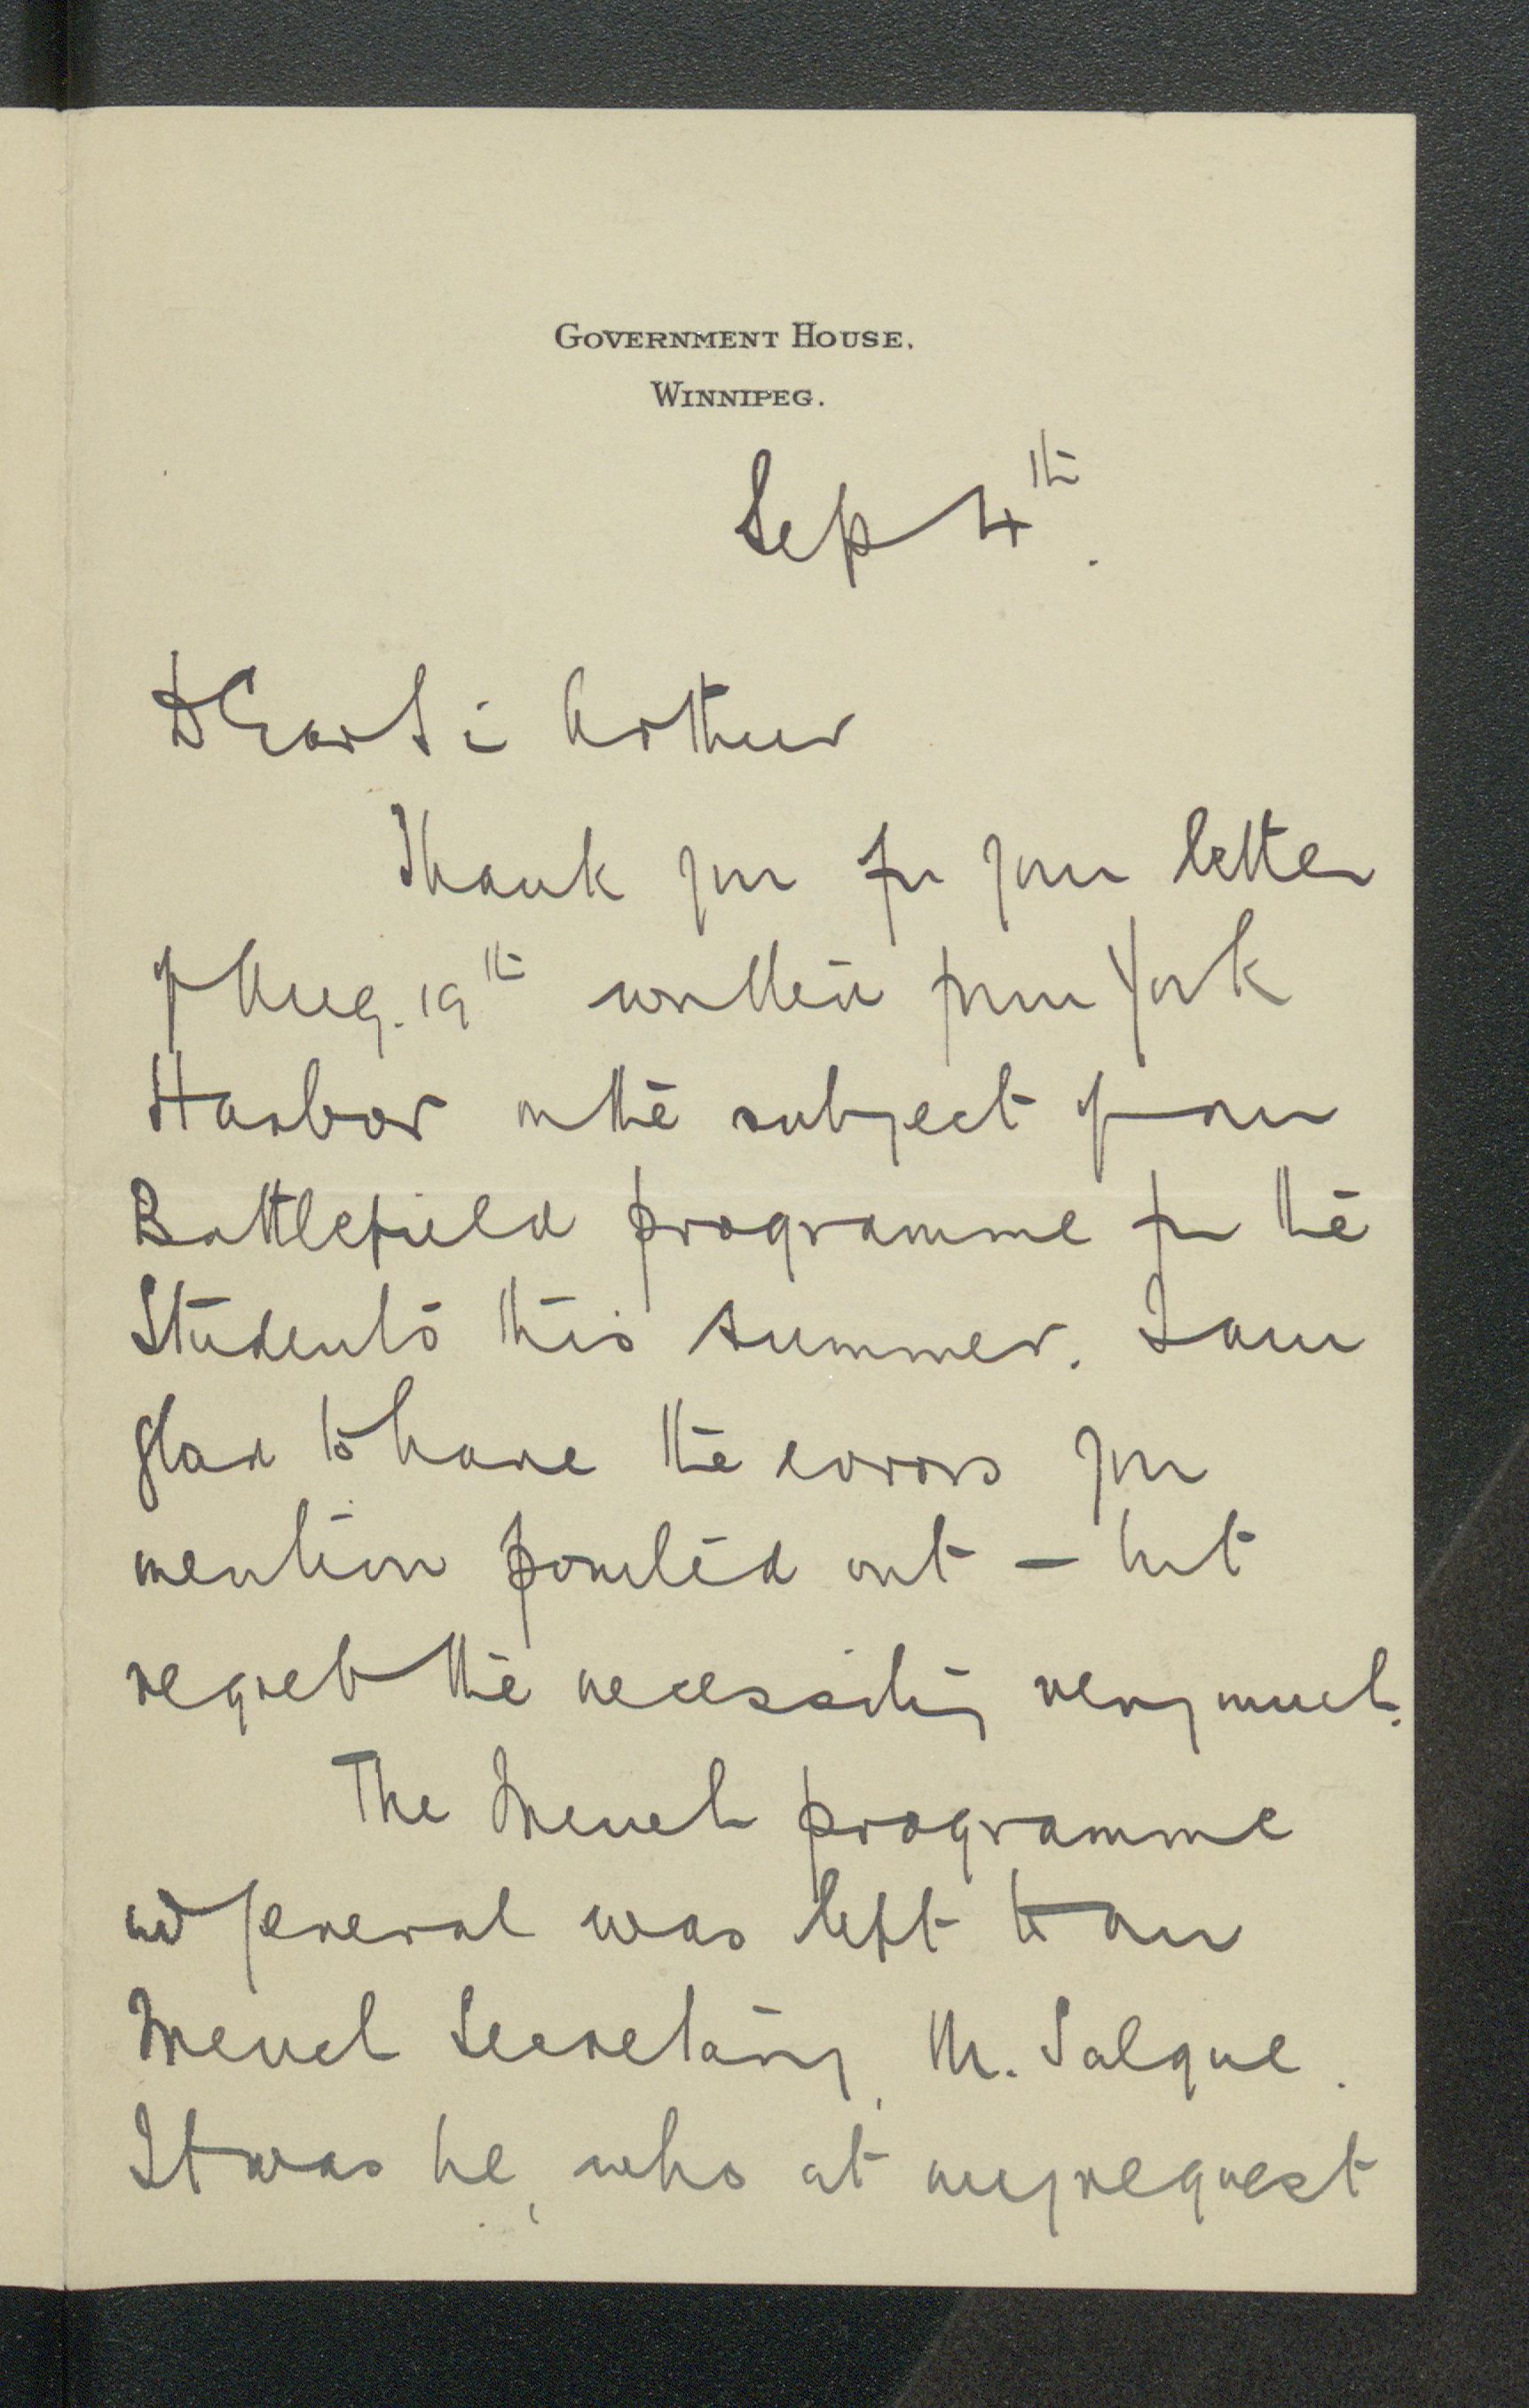 GOVERNMENT HOUSE,
WINNIPEG.
Sep 4th.
Dear Sir Arthur
Thank you for your letter
of Aug. 19th written from York
Harbor on the subject of our
Battlefield programme for the
Students this summer. I am
glad to have the errors you
mention pointed out – but
regret the necessity very much.
The French programme
in general was left to our
French Secretary, M. Salque.
It was he, who at my request